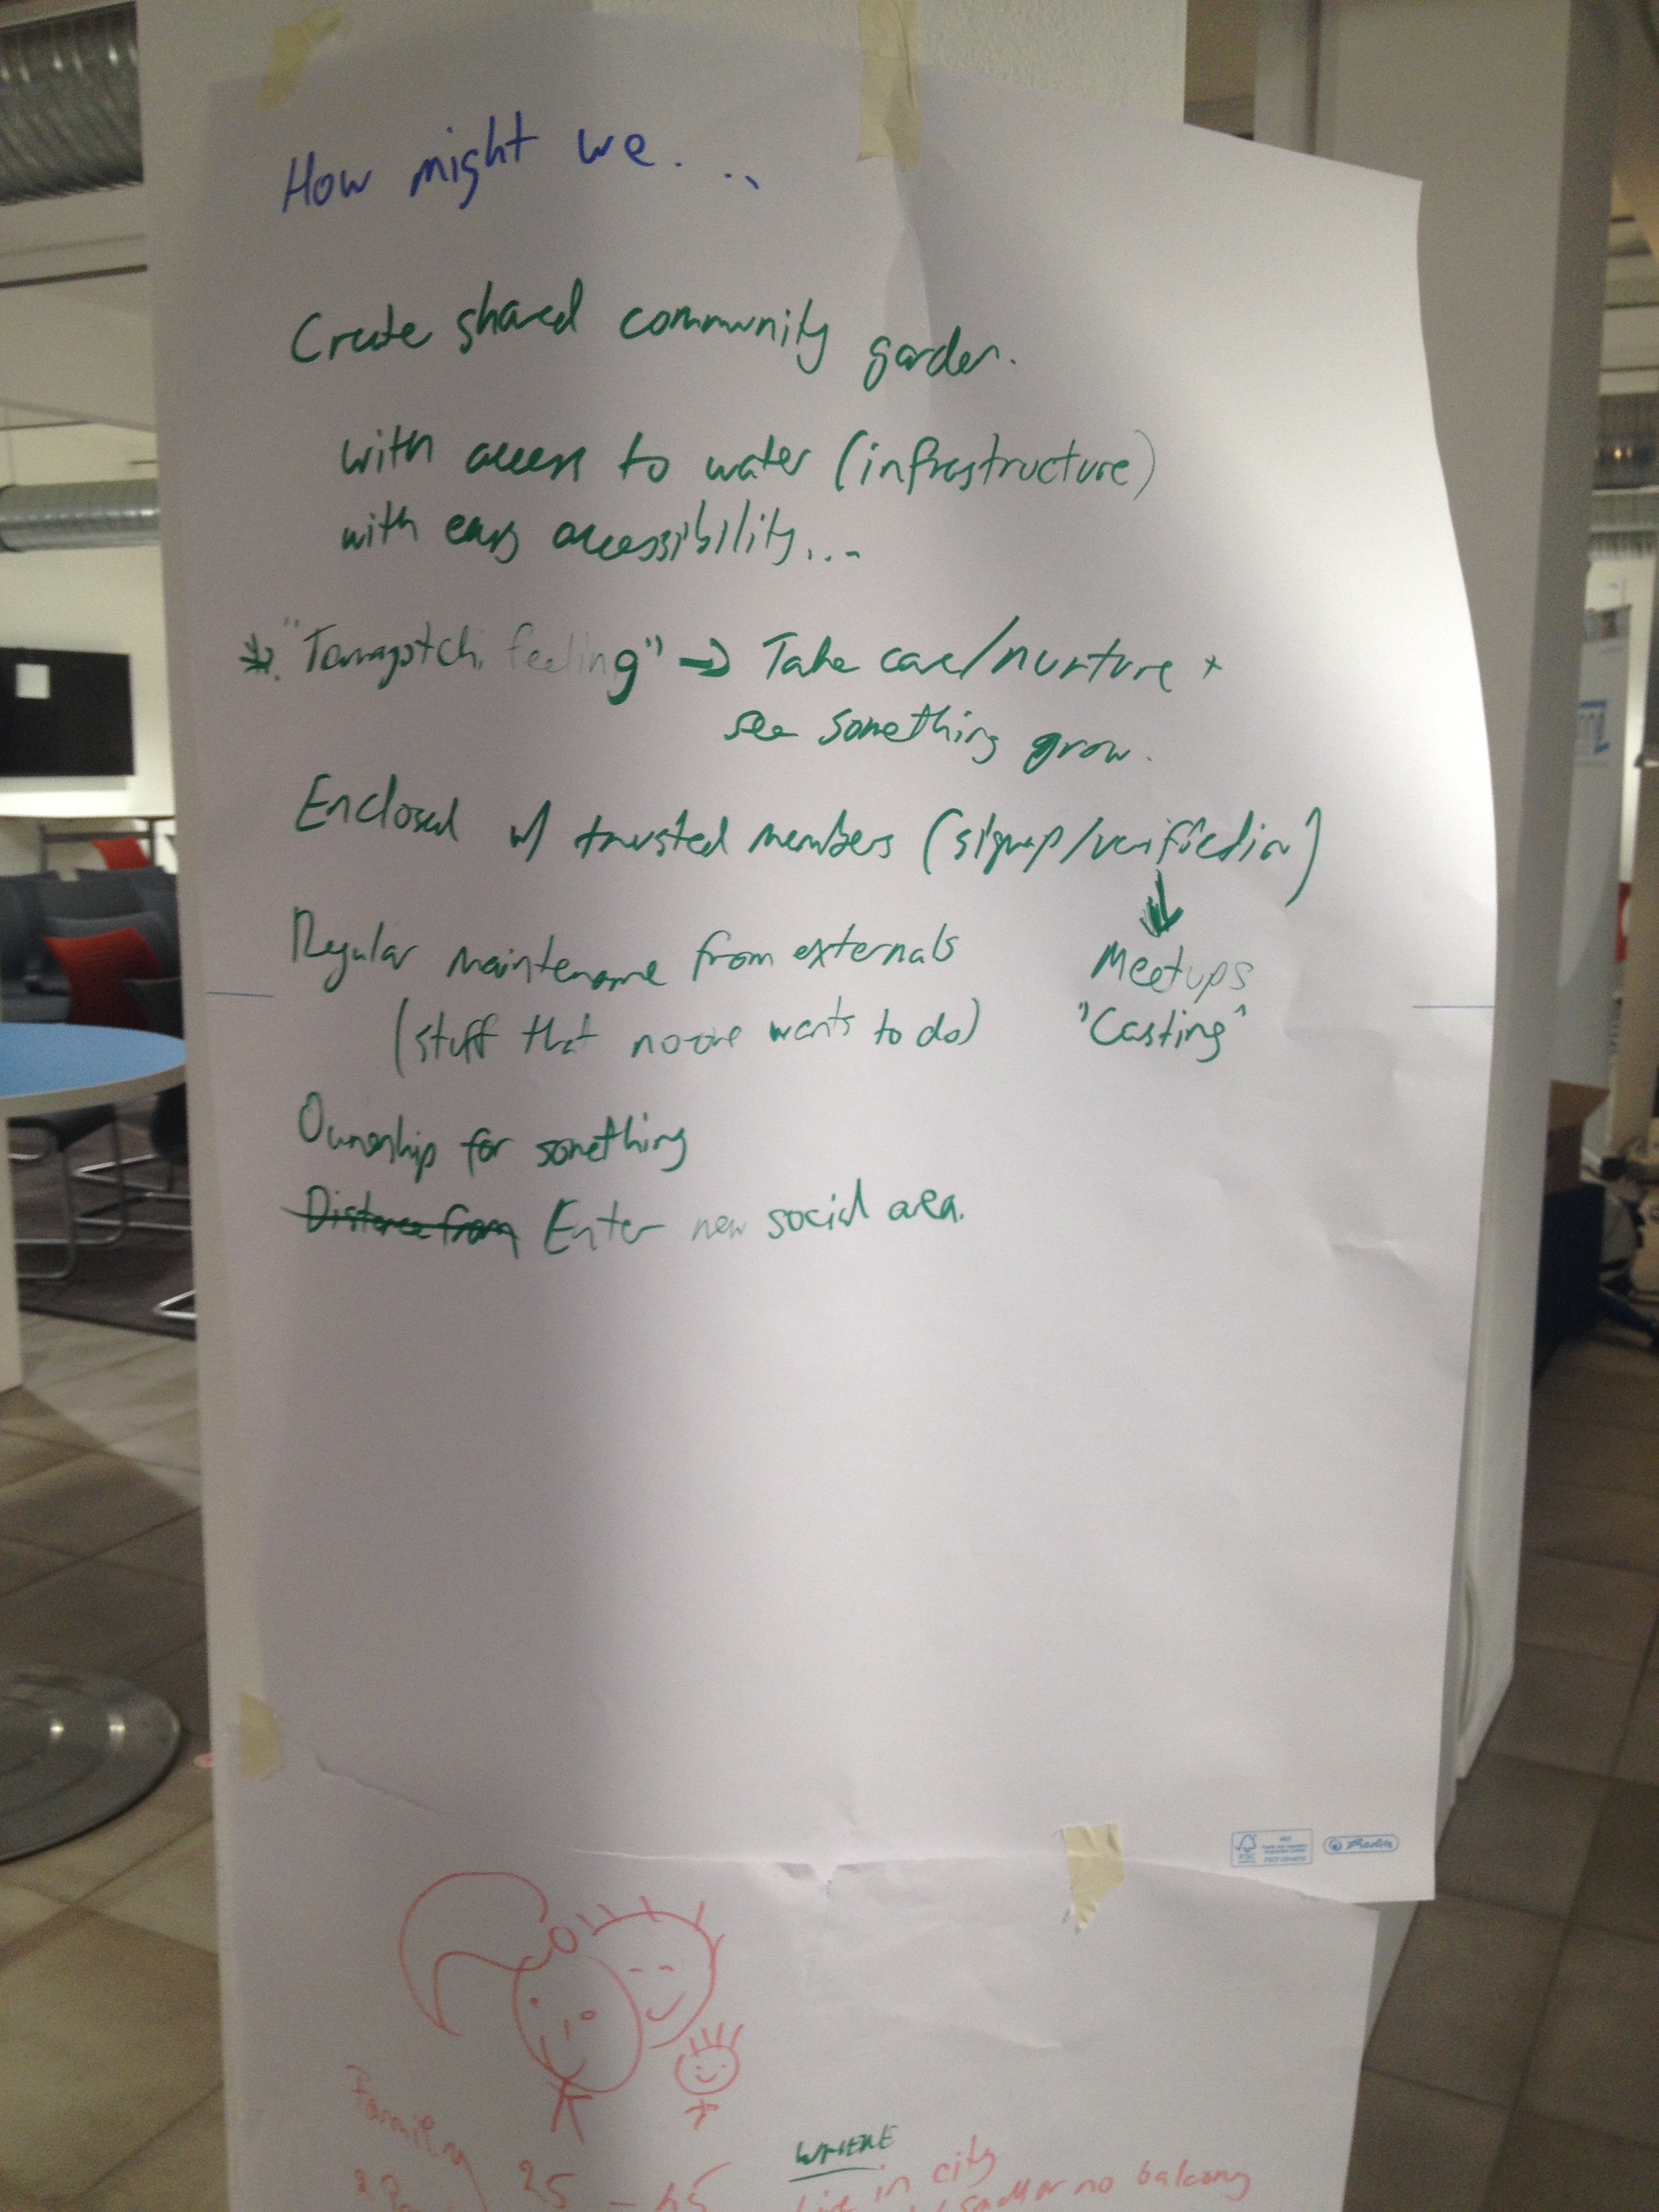 How might we...
Create shared community garden.
with access to water (infrastructure)
with easy accessibility...
"Tamagotchi feeling" → Take care/nurture +
see something grow.
Enclosed w/ trusted members (signup/verification)
Regular maintenance from externals
(stuff that no one wants to do)
Meetups
"Casting"
Ownership for something
Distance from Enter new social area.
Family
25 - 45
WHERE
live in city
small or no balcony